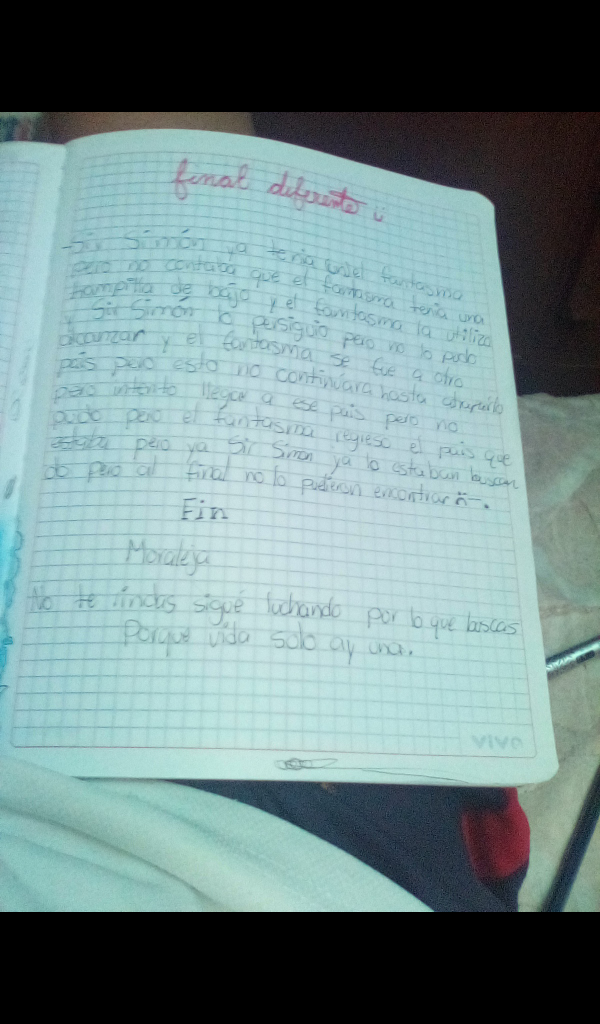 final diferente
Sir Simón ya tenia el fantasma
pero no contaba que el fantasma tenia una
trampilla de bajo y el fantasma la utilizo
y Sir Simón lo persiguio pero no lo pudo
alcanzar y el fantasma se fue a otro
pais pero esto no continuara hasta
pero intento llegar a ese pais pero no
pudo pero el fantasma regreso el pais que
estaba pero ya Sir Simon ya lo estaban buscan
do pero al final no lo pudieron encontrar
Fin
Moraleja
No te rindas sigué luchando por lo que buscas
Porque vida solo ay una.
VIVA